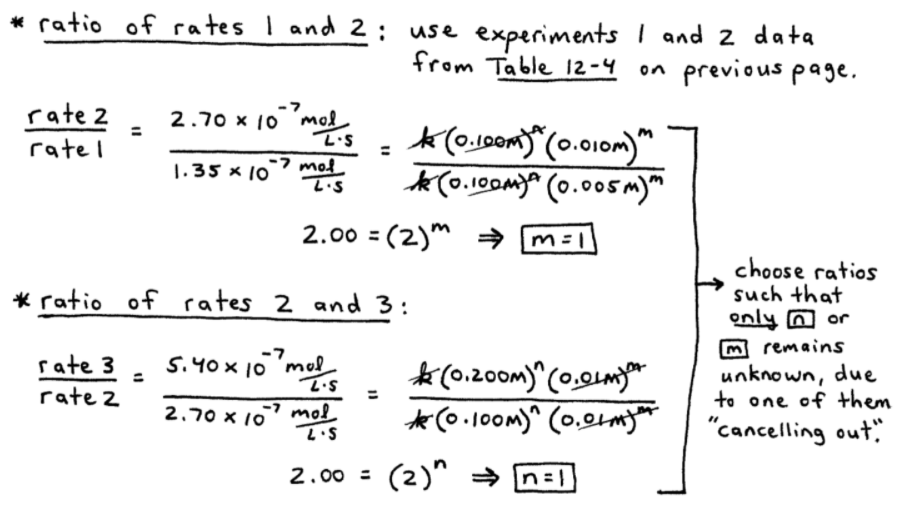 * ratio of rates 1 and 2 : use experiments 1 and 2 data
from Table 12-4 on previous page.
rate 2 / rate 1 = 2.70 × 10⁻⁷ mol/L·s / 1.35 × 10⁻⁷ mol/L·s = k(0.100M)ⁿ(0.010M)ᵐ / k(0.100M)ⁿ(0.005M)ᵐ
2.00 = (2)ᵐ ⇒ m = 1
* ratio of rates 2 and 3 :
rate 3 / rate 2 = 5.40 × 10⁻⁷ mol/L·s / 2.70 × 10⁻⁷ mol/L·s = k(0.200M)ⁿ(0.01M)ᵐ / k(0.100M)ⁿ(0.01M)ᵐ
2.00 = (2)ⁿ ⇒ n = 1
→ choose ratios
such that
only n or
m remains
unknown, due
to one of them
"cancelling out".